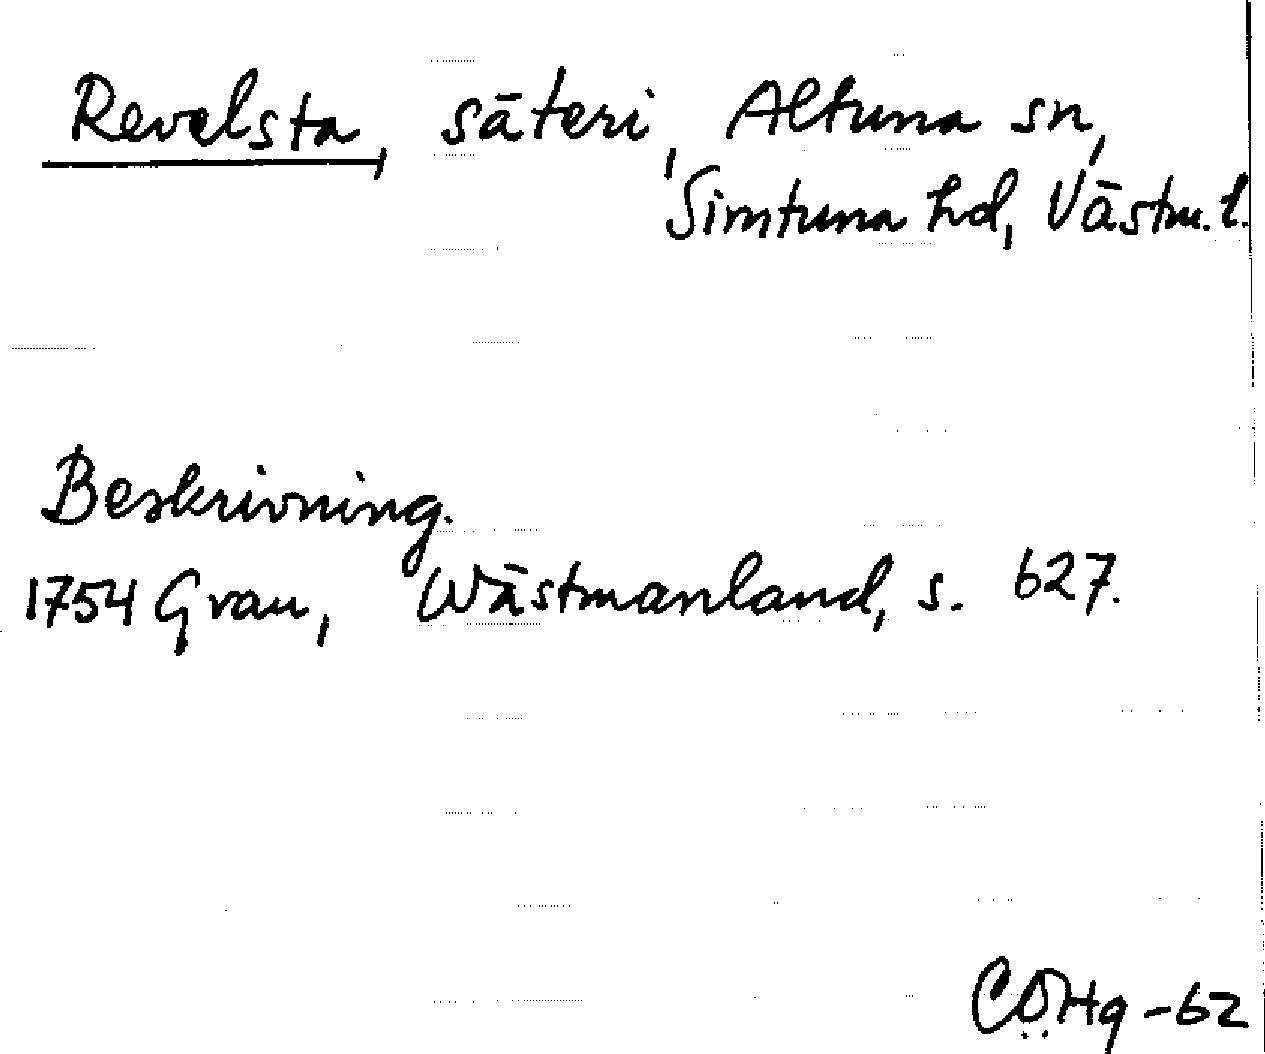 Revelsta, säteri, Altuna sn,
Simtuna hd, Västm. l.
Beskrivning.
1754 Grau, Wästmanland, s. 627.
CÖHg -62